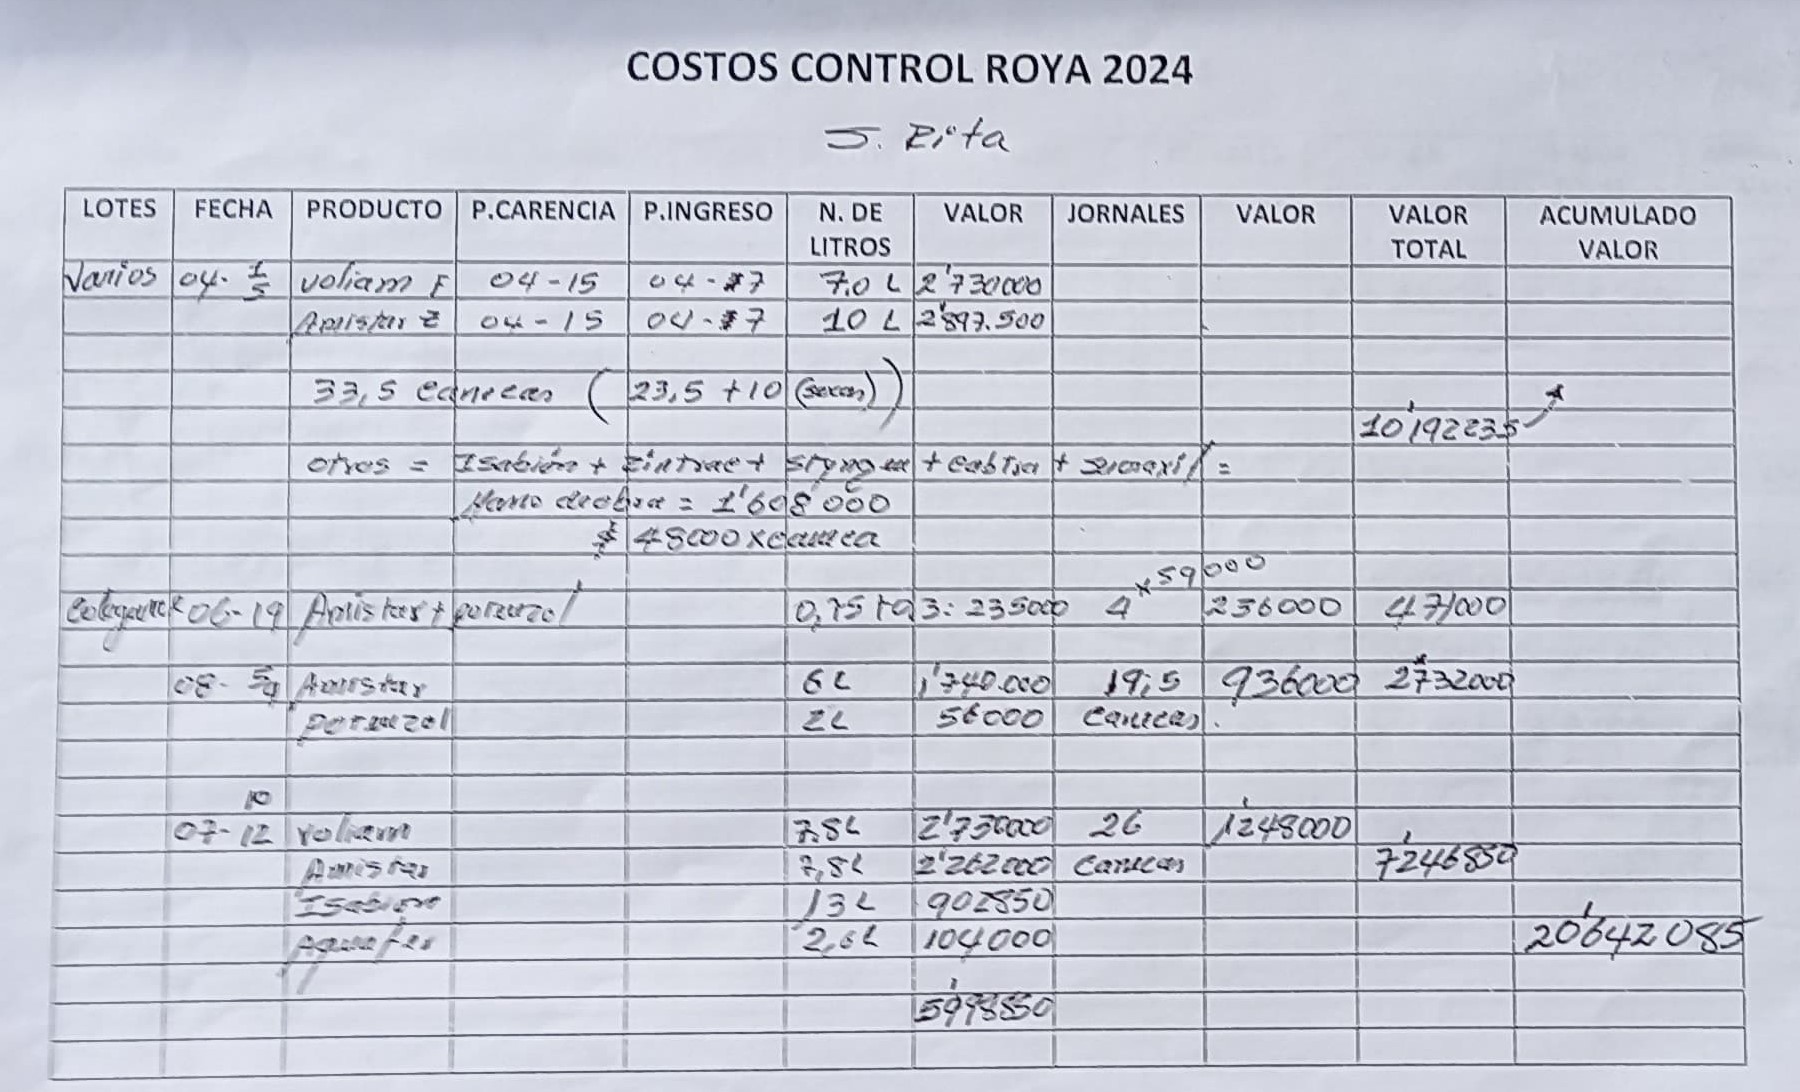 COSTOS CONTROL ROYA 2024
S. Rita
LOTES FECHA PRODUCTO P.CARENCIA P.INGRESO N. DE LITROS VALOR JORNALES VALOR VALOR TOTAL ACUMULADO VALOR
Varios 04- 1/5 voliam F 04-15 04-7 7.0 L 2'730000
Amistar Z 04-15 04-7 10 L 2'897.500
33,5 canecas ( 23,5 +10 (secas))
10'192235
otros = Isabión + Zintrac + + cabtra + =
Mano deobra = 1'608'000
$ 48000 x caneca
x 59000
06-19 Amistar + poranzol 235000 4 236000 471000
08- 5/9 Amistar 6L 1'740.000 19,5 936000 2'732000
poranzol 2L 56000 canecas.
10
07-12 voliam 7,8L 2'730000 26 1'248000
Amistar 7,8L 2'262000 canecas 7'246850
Isabion 13L 902850
2,6L 104000 20'642085
5'998850